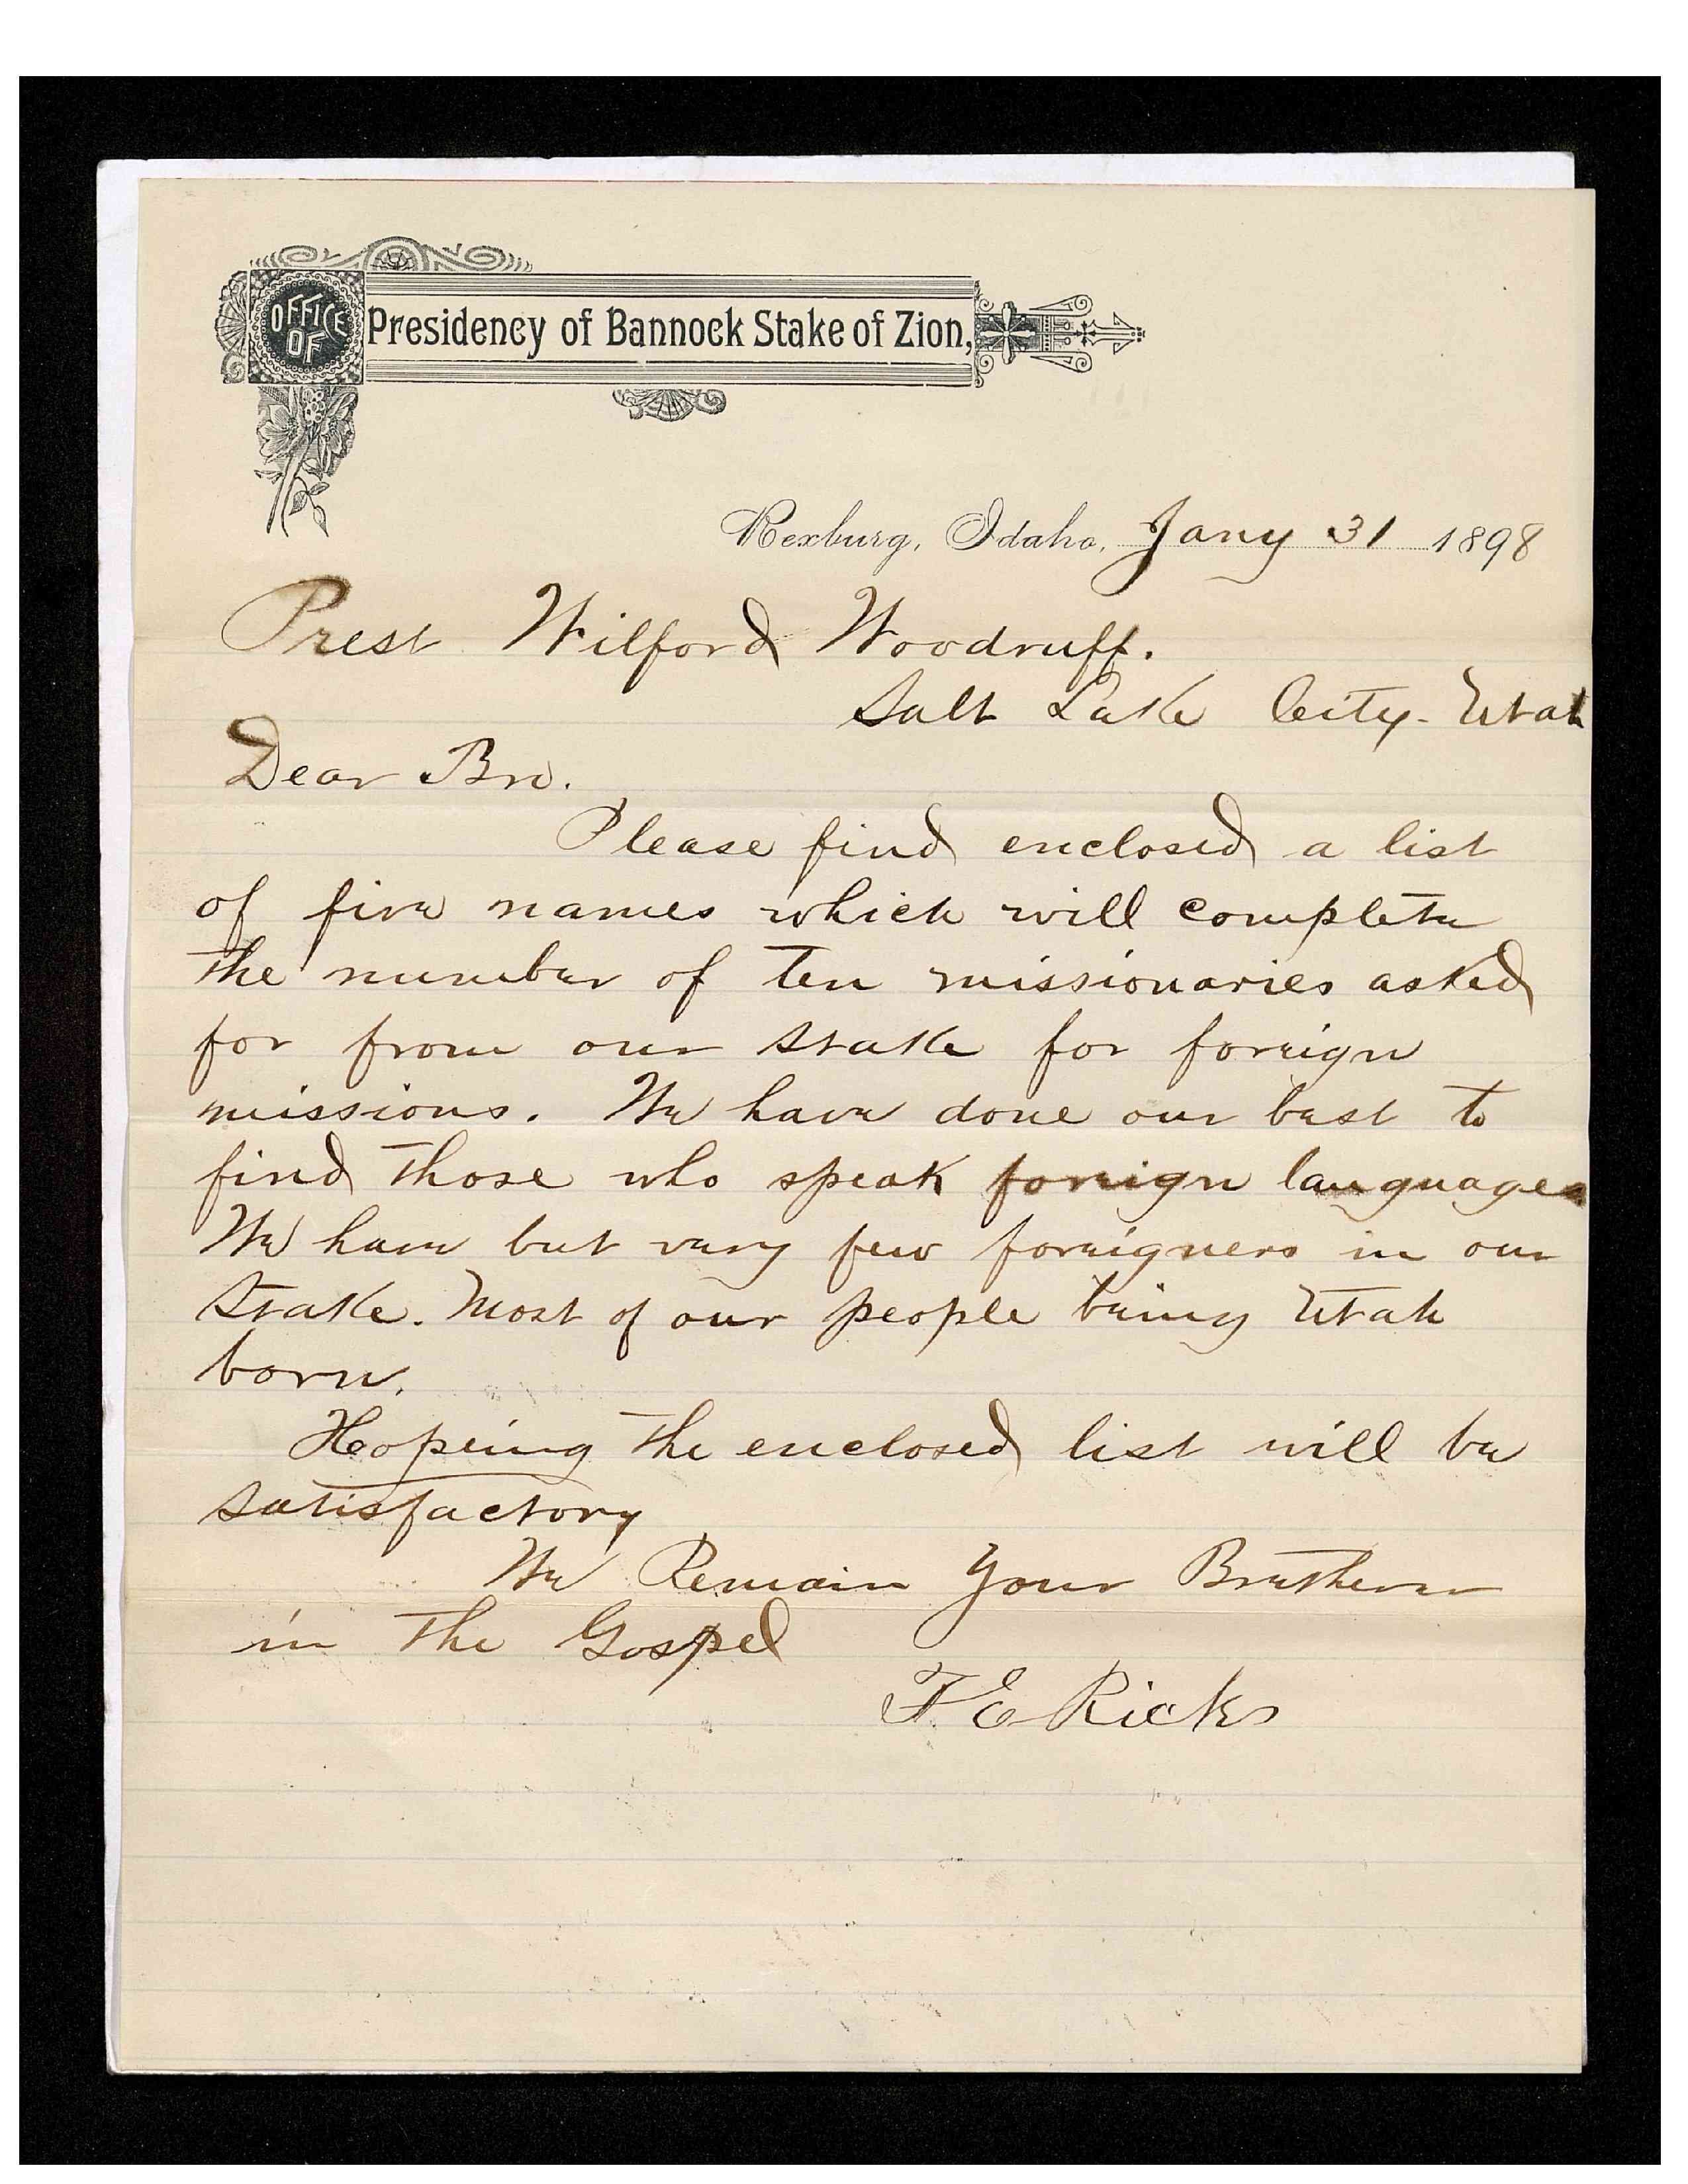 OFFICE OF
Presidency of Bannock Stake of Zion,
Rexburg, Idaho, Jany 31 1898
Prest Wilford Woodruff.
Salt Lake City. Utah
Dear Bro.
Please find enclosed a list
of five names which will complete
the number of ten missionaries asked
for from our stake for foreign
missions. We have done our best to
find those who speak foreign languages
We have but very few foreigners in our
Stake. Most of our people being Utah
born.
Hopeing the enclosed list will be
satisfactory
We Remain Your Brethern
in the Gospel
T. E Ricks